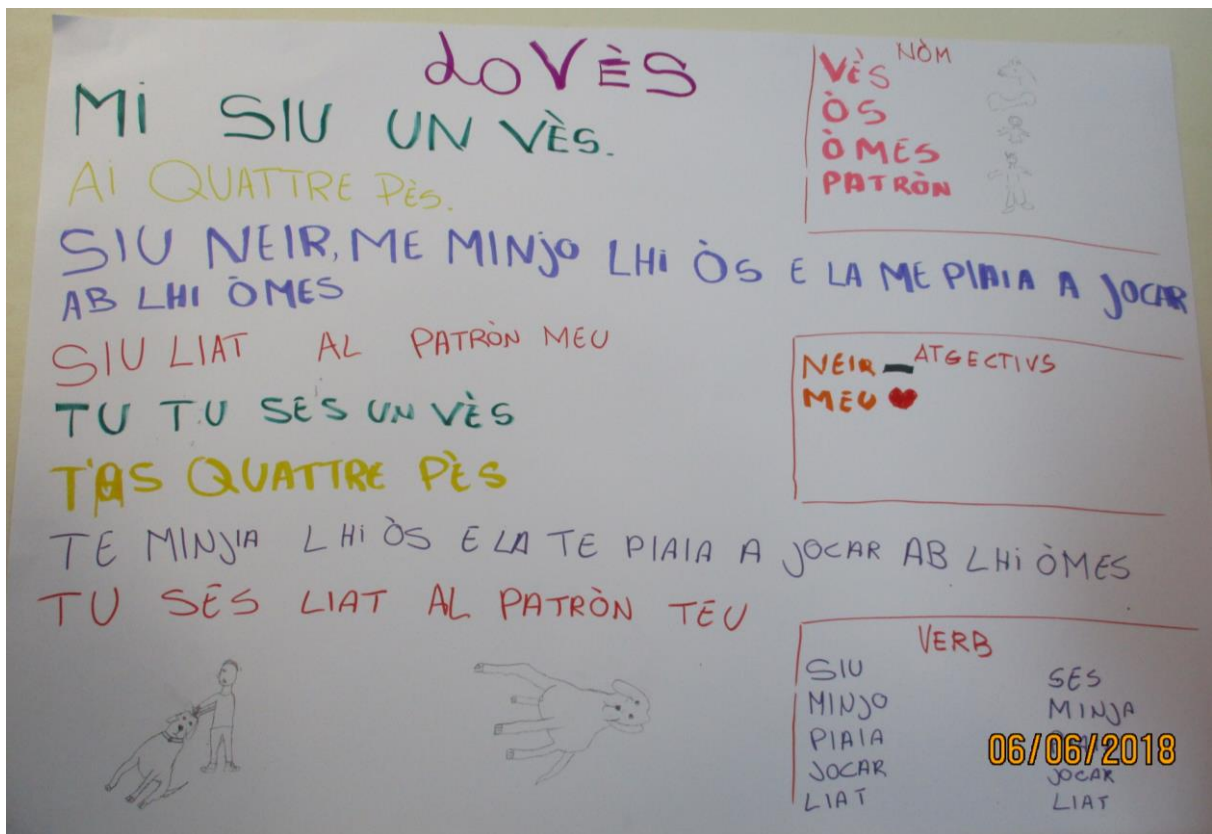 LO VÈS
MI SIU UN VÈS.
AI QUATTRE PÈS.
SIU NEIR, ME MINJO LHI ÒS E LA ME PIAIA A JOCAR
AB LHI ÒMES
SIU LIAT AL PATRÒN MEU
TU TU SÉS UN VÈS
T'AS QUATTRE PÈS
TE MINJIA LHI ÒS E LA TE PIAIA A JOCAR AB LHI ÒMES
TU SÉS LIAT AL PATRÒN TEU
NÒM
VÈS
ÒS
ÒMES
PATRÒN
ATGECTIVS
NEIR
MEU
VERB
SIU SES
MINJO MINJA
PIAIA
JOCAR JOCAR
LIAT LIAT
06/06/2018